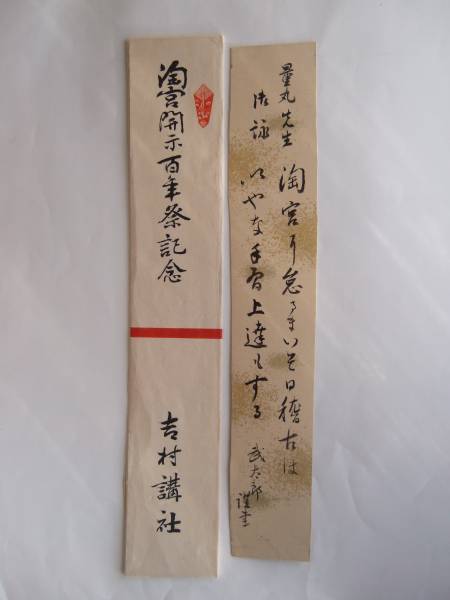 量丸先生
淘宮 怠るまいそ日稽古は
御詠
いやな手習上達もする
武太郎
謹書
淘宮開示百年祭記念
吉村講社